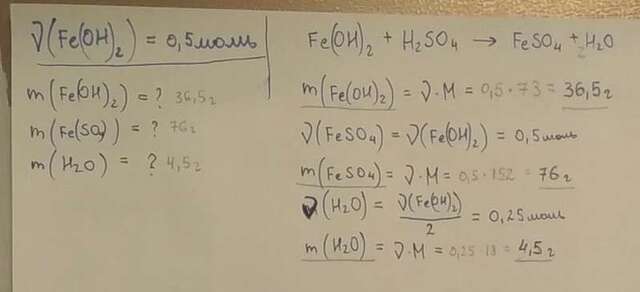 ν(Fe(OH)₂) = 0,5моль
m(Fe(OH)₂) = ? 36,5г
m(Fe(SO₄) = ? 76г
m(H₂O) = ? 4,5г
Fe(OH)₂ + H₂SO₄ → FeSO₄ + 2H₂O
m(Fe(OH)₂) = ν·M = 0,5·73 = 36,5г
ν(FeSO₄) = ν(Fe(OH)₂) = 0,5моль
m(FeSO₄) = ν·M = 0,5·152 = 76г
ν(H₂O) = ν(Fe(OH)₂)/2 = 0,25моль
m(H₂O) = ν·M = 0,25·18 = 4,5г